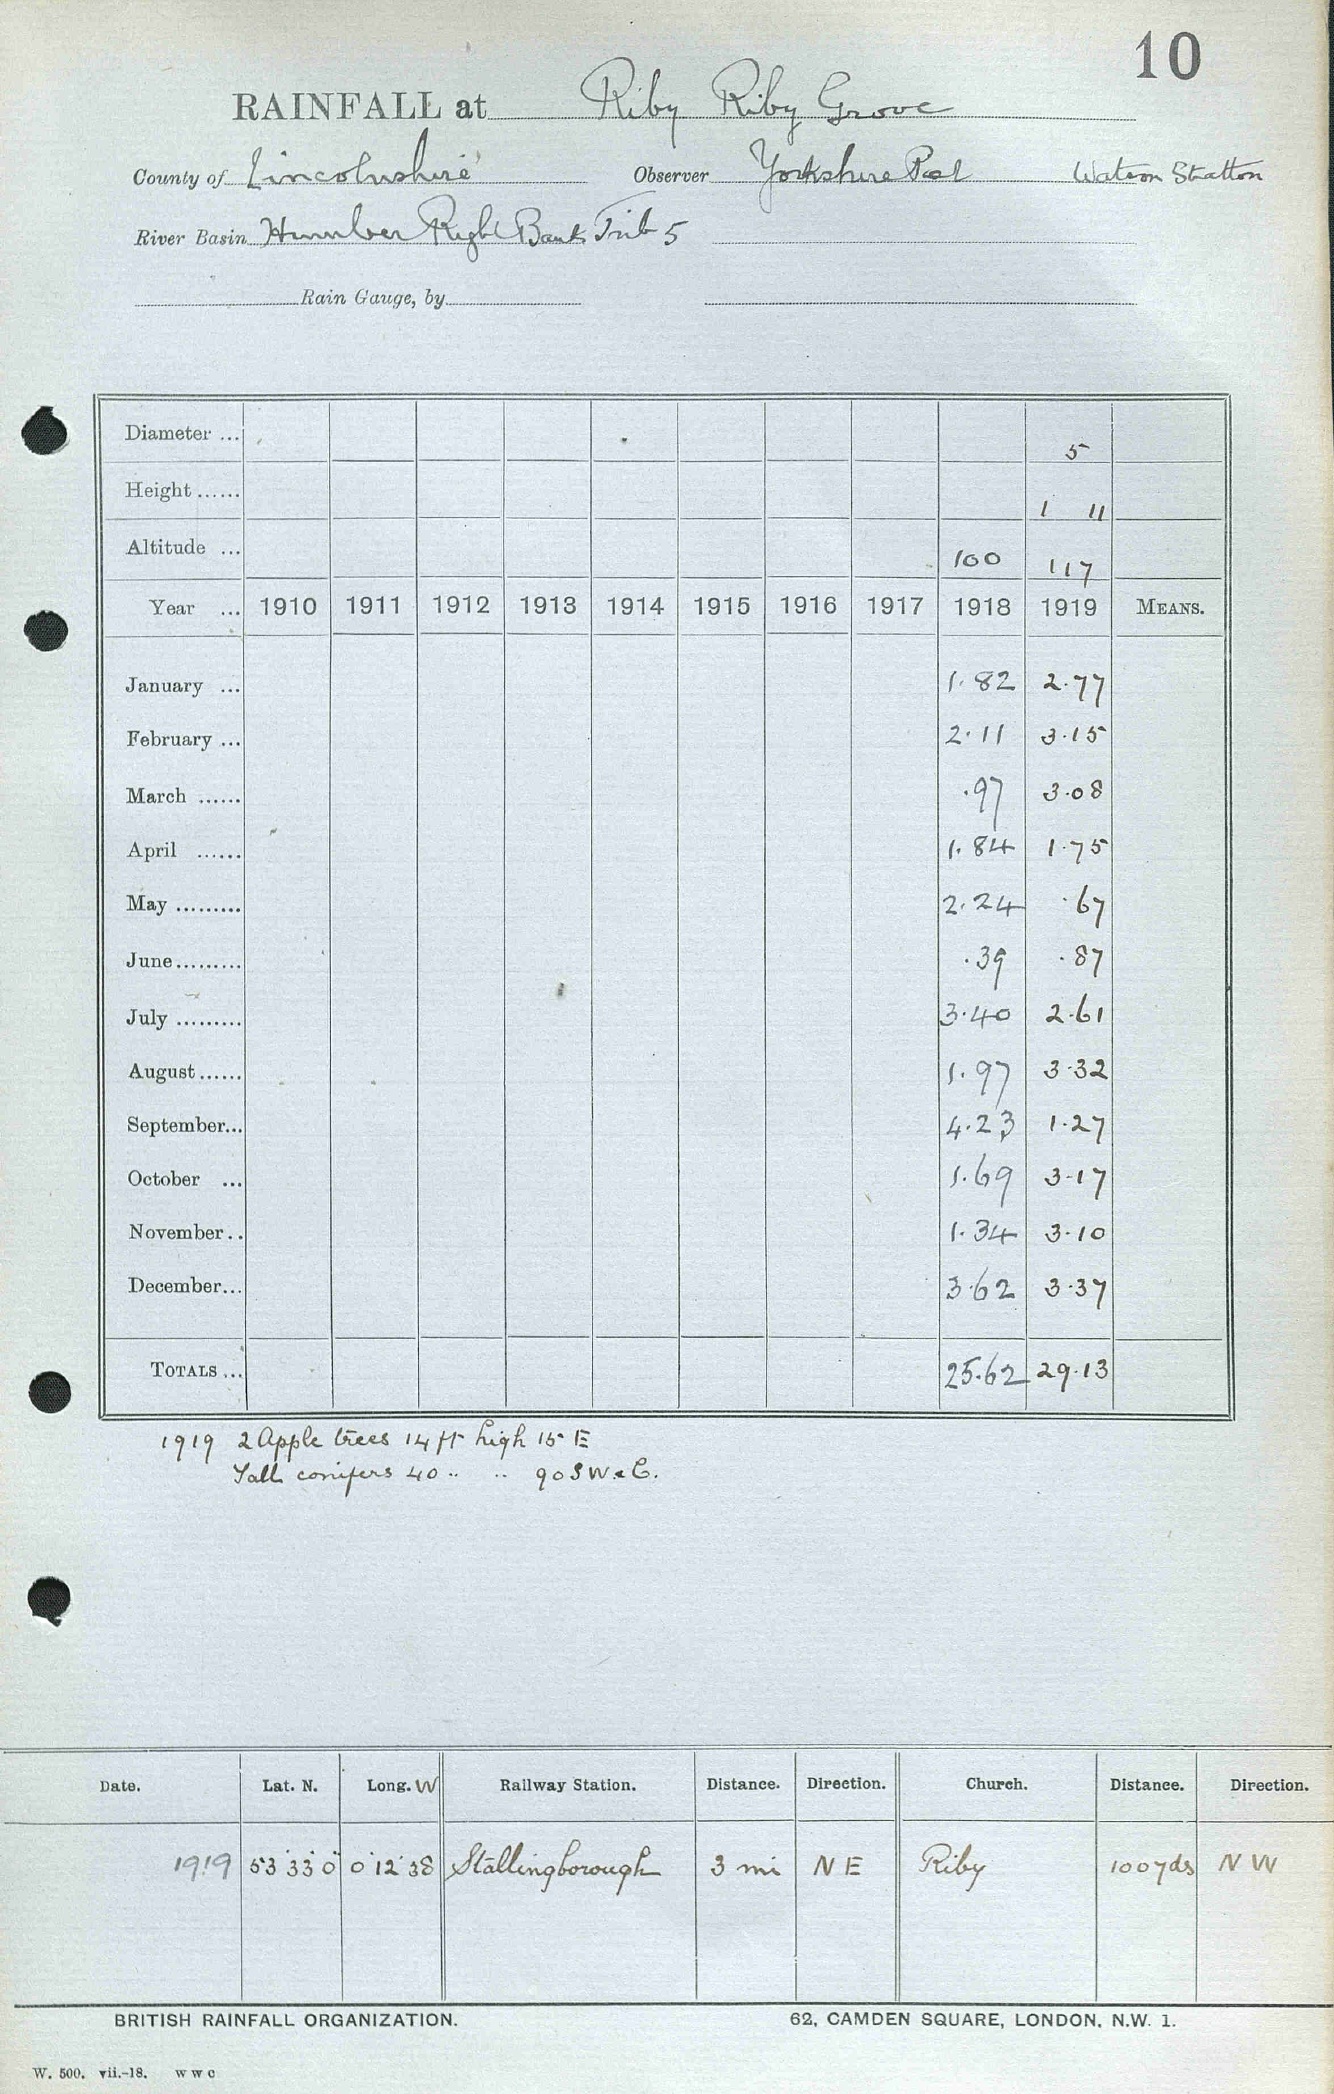 10
RAINFALL at Riby Riby Grove
County of Lincolnshire Observer Yorkshire Post Watson Stratton
River Basin Humber Right Bank Trib 5
Rain Gauge, by
Diameter ... 5
Height ...... 1 11
Altitude ... 100 117
Year ... 1910 1911 1912 1913 1914 1915 1916 1917 1918 1919 MEANS.
January ... 1.82 2.77
February ... 2.11 3.15
March ...... .97 3.08
April ...... 1.84 1.75
May ......... 2.24 .67
June ......... .39 .87
July ......... 3.40 2.61
August ...... 1.97 3.32
September... 4.23 1.27
October ... 1.69 3.17
November.. 1.34 3.10
December... 3.62 3.37
TOTALS ... 25.62 29.13
1919 2 Apple trees 14 ft high 15 E
Tall conifers 40 .. .. 90 SW &
Date. Lat. N. Long. W Railway Station. Distance. Direction. Church. Distance. Direction.
1919 53° 33' 0" 0° 12' 38 Stallingborough 3 mi NE Riby 100 yds NW
BRITISH RAINFALL ORGANIZATION. 62, CAMDEN SQUARE, LONDON, N.W. 1.
W. 500. vii.-18. w w c